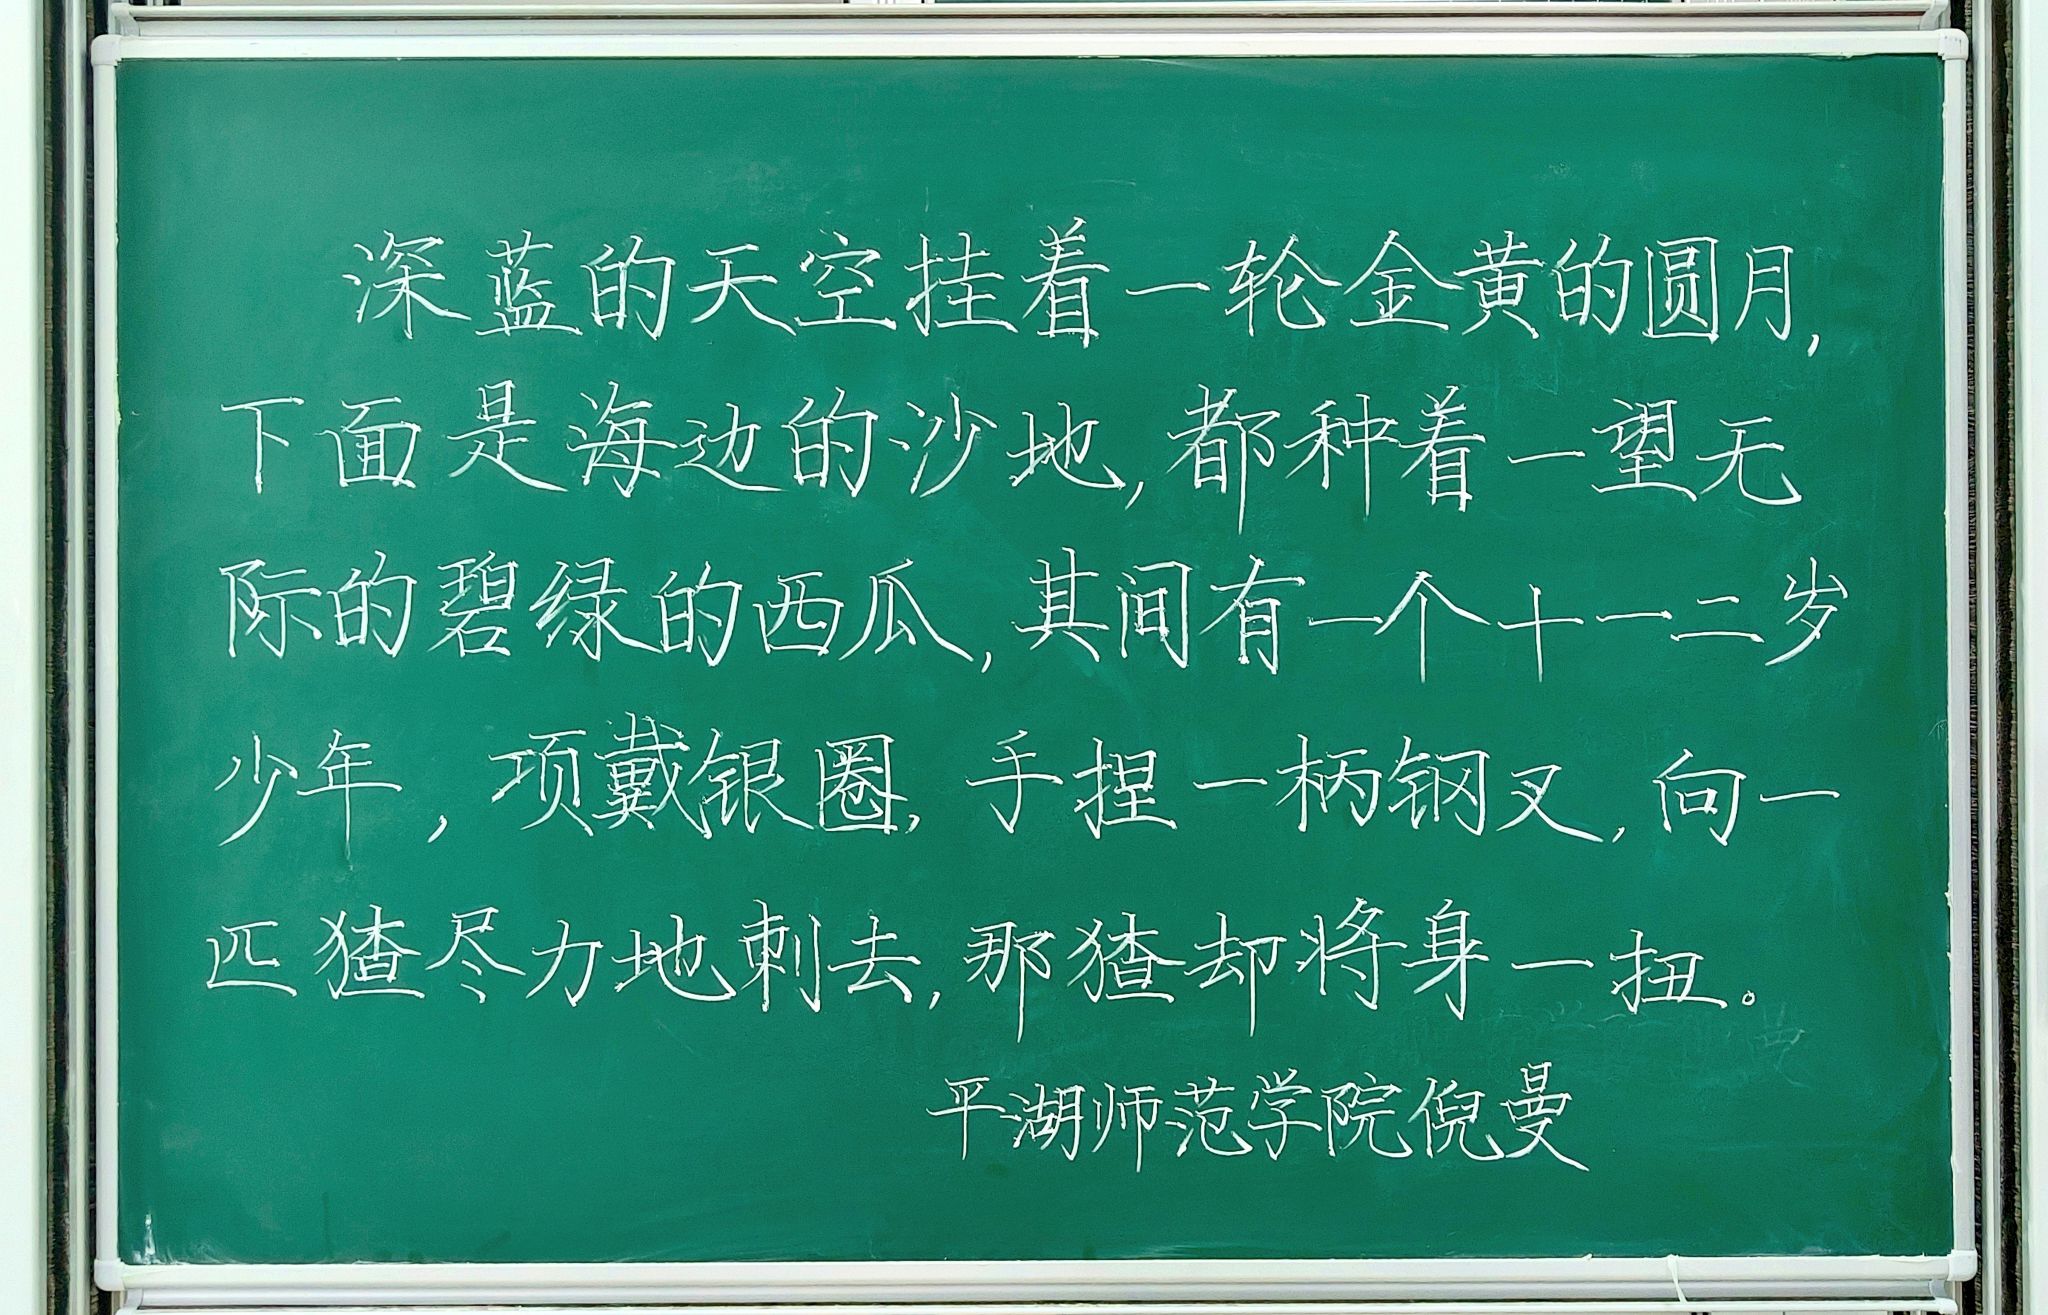 深蓝的天空挂着一轮金黄的圆月,
下面是海边的沙地,都种着一望无
际的碧绿的西瓜,其间有一个十一二岁
少年,项戴银圈,手捏一柄钢叉,向一
匹猹尽力地刺去,那猹却将身一扭。
平湖师范学院倪曼